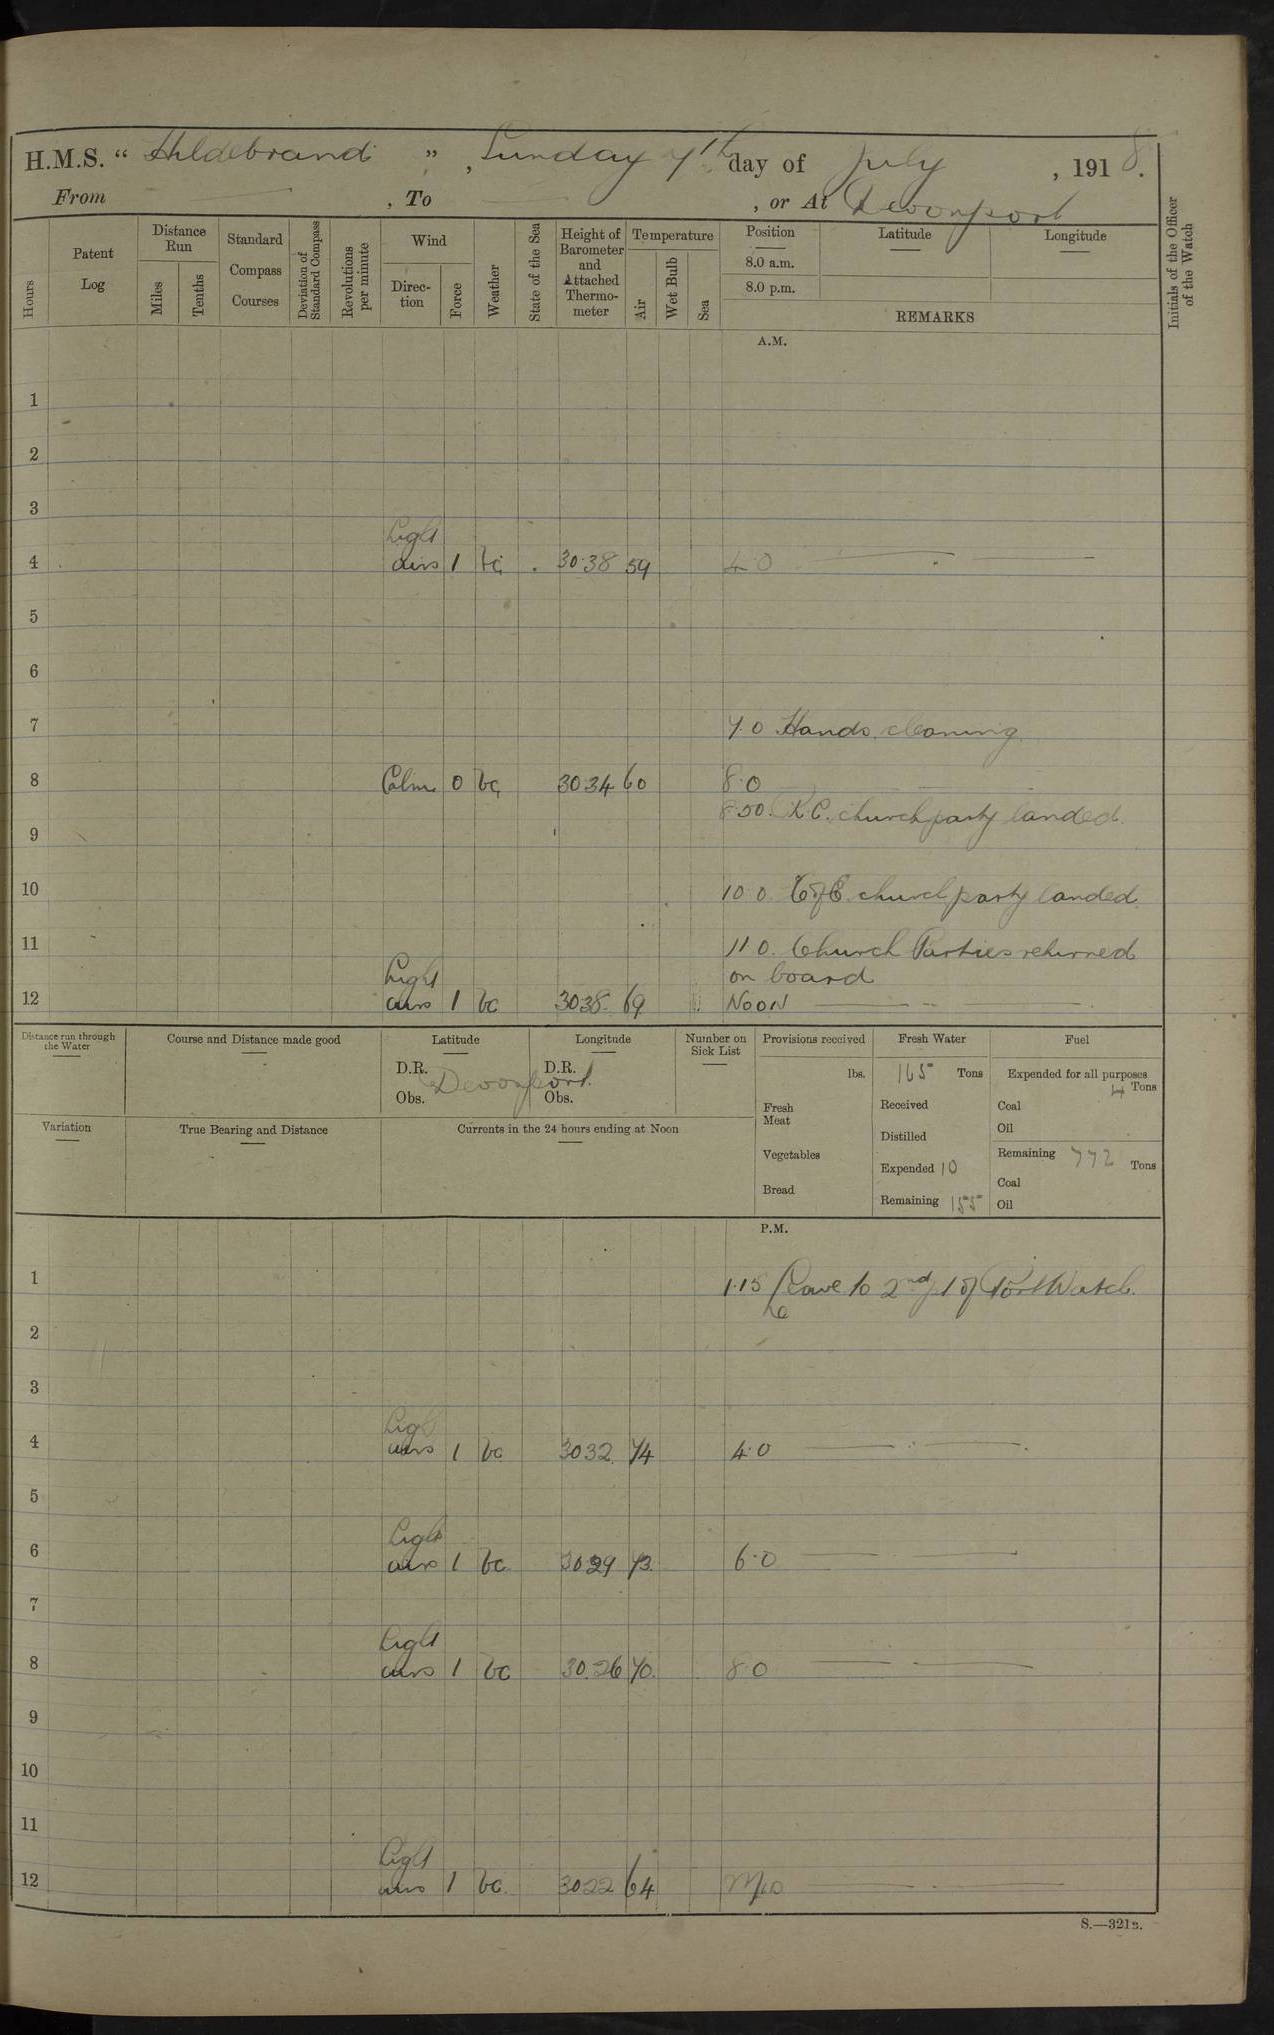 H.M.S. “ Hildebrand ” , Sunday 7th day of July , 1918.
From , To , or At Devonport
Hours
Patent Log
Distance Run
Miles
Tenths
Standard Compass Courses
Deviation of Standard Compass
Revolutions per minute
Wind
Direction
Force
Weather
State of the Sea
Height of Barometer and Attached Thermometer
Temperature
Air
Wet Bulb
Sea
Position
8.0 a.m.
8.0 p.m.
Latitude
Longitude
REMARKS
Initials of the Officer of the Watch
A.M.
1
2
3
Light
4 airs 1 bc 30.38 59 4.0
5
6
7 7.0 Hands cleaning
8 Calm 0 bc 30.34 60 8.0
8.50. R.C. church party landed.
9
10 10.0. C of E. church party landed.
11 11.0. Church Parties returned
Light on board
12 airs 1 bc 30.38 69 Noon
Distance run through the Water
Course and Distance made good
Latitude
D.R. Devonport.
Obs.
Longitude
D.R.
Obs.
Number on Sick List
Provisions received
lbs.
Fresh Meat
Vegetables
Bread
Fresh Water
165 Tons
Received
Distilled
Expended 10
Remaining 155
Fuel
Expended for all purposes
4 Tons
Coal
Oil
Remaining 772 Tons
Coal
Oil
Variation
True Bearing and Distance
Currents in the 24 hours ending at Noon
P.M.
1 1.15 Leave to 2nd of Port Watch.
2
3
Light
4 airs 1 bc 30.32 74 4.0
5
Light
6 airs 1 bc 30.29 73 6.0
7
Light
8 airs 1 bc 30.26 70 8.0
9
10
11
Light
12 airs 1 bc 30.22 64 Mid
S.—321B.